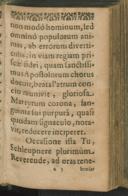 nno modò hominum, sed
omnino populorum ani-
mas, ab erroris diverti-
culis, in viam regiam pri-
scæ fidei, quam sanctissi-
mus Apostolorum chorus
docuit, beata Patrum con-
cio munivit, gloriosa
Martyrum corona, san-
guinis sui purpurâ, quasi
quodam igniculo, nota-
vit, reducere inciperet.
Occasione ista Tu,
Schleupnere plurimùm
Reverende, ad oras tene-